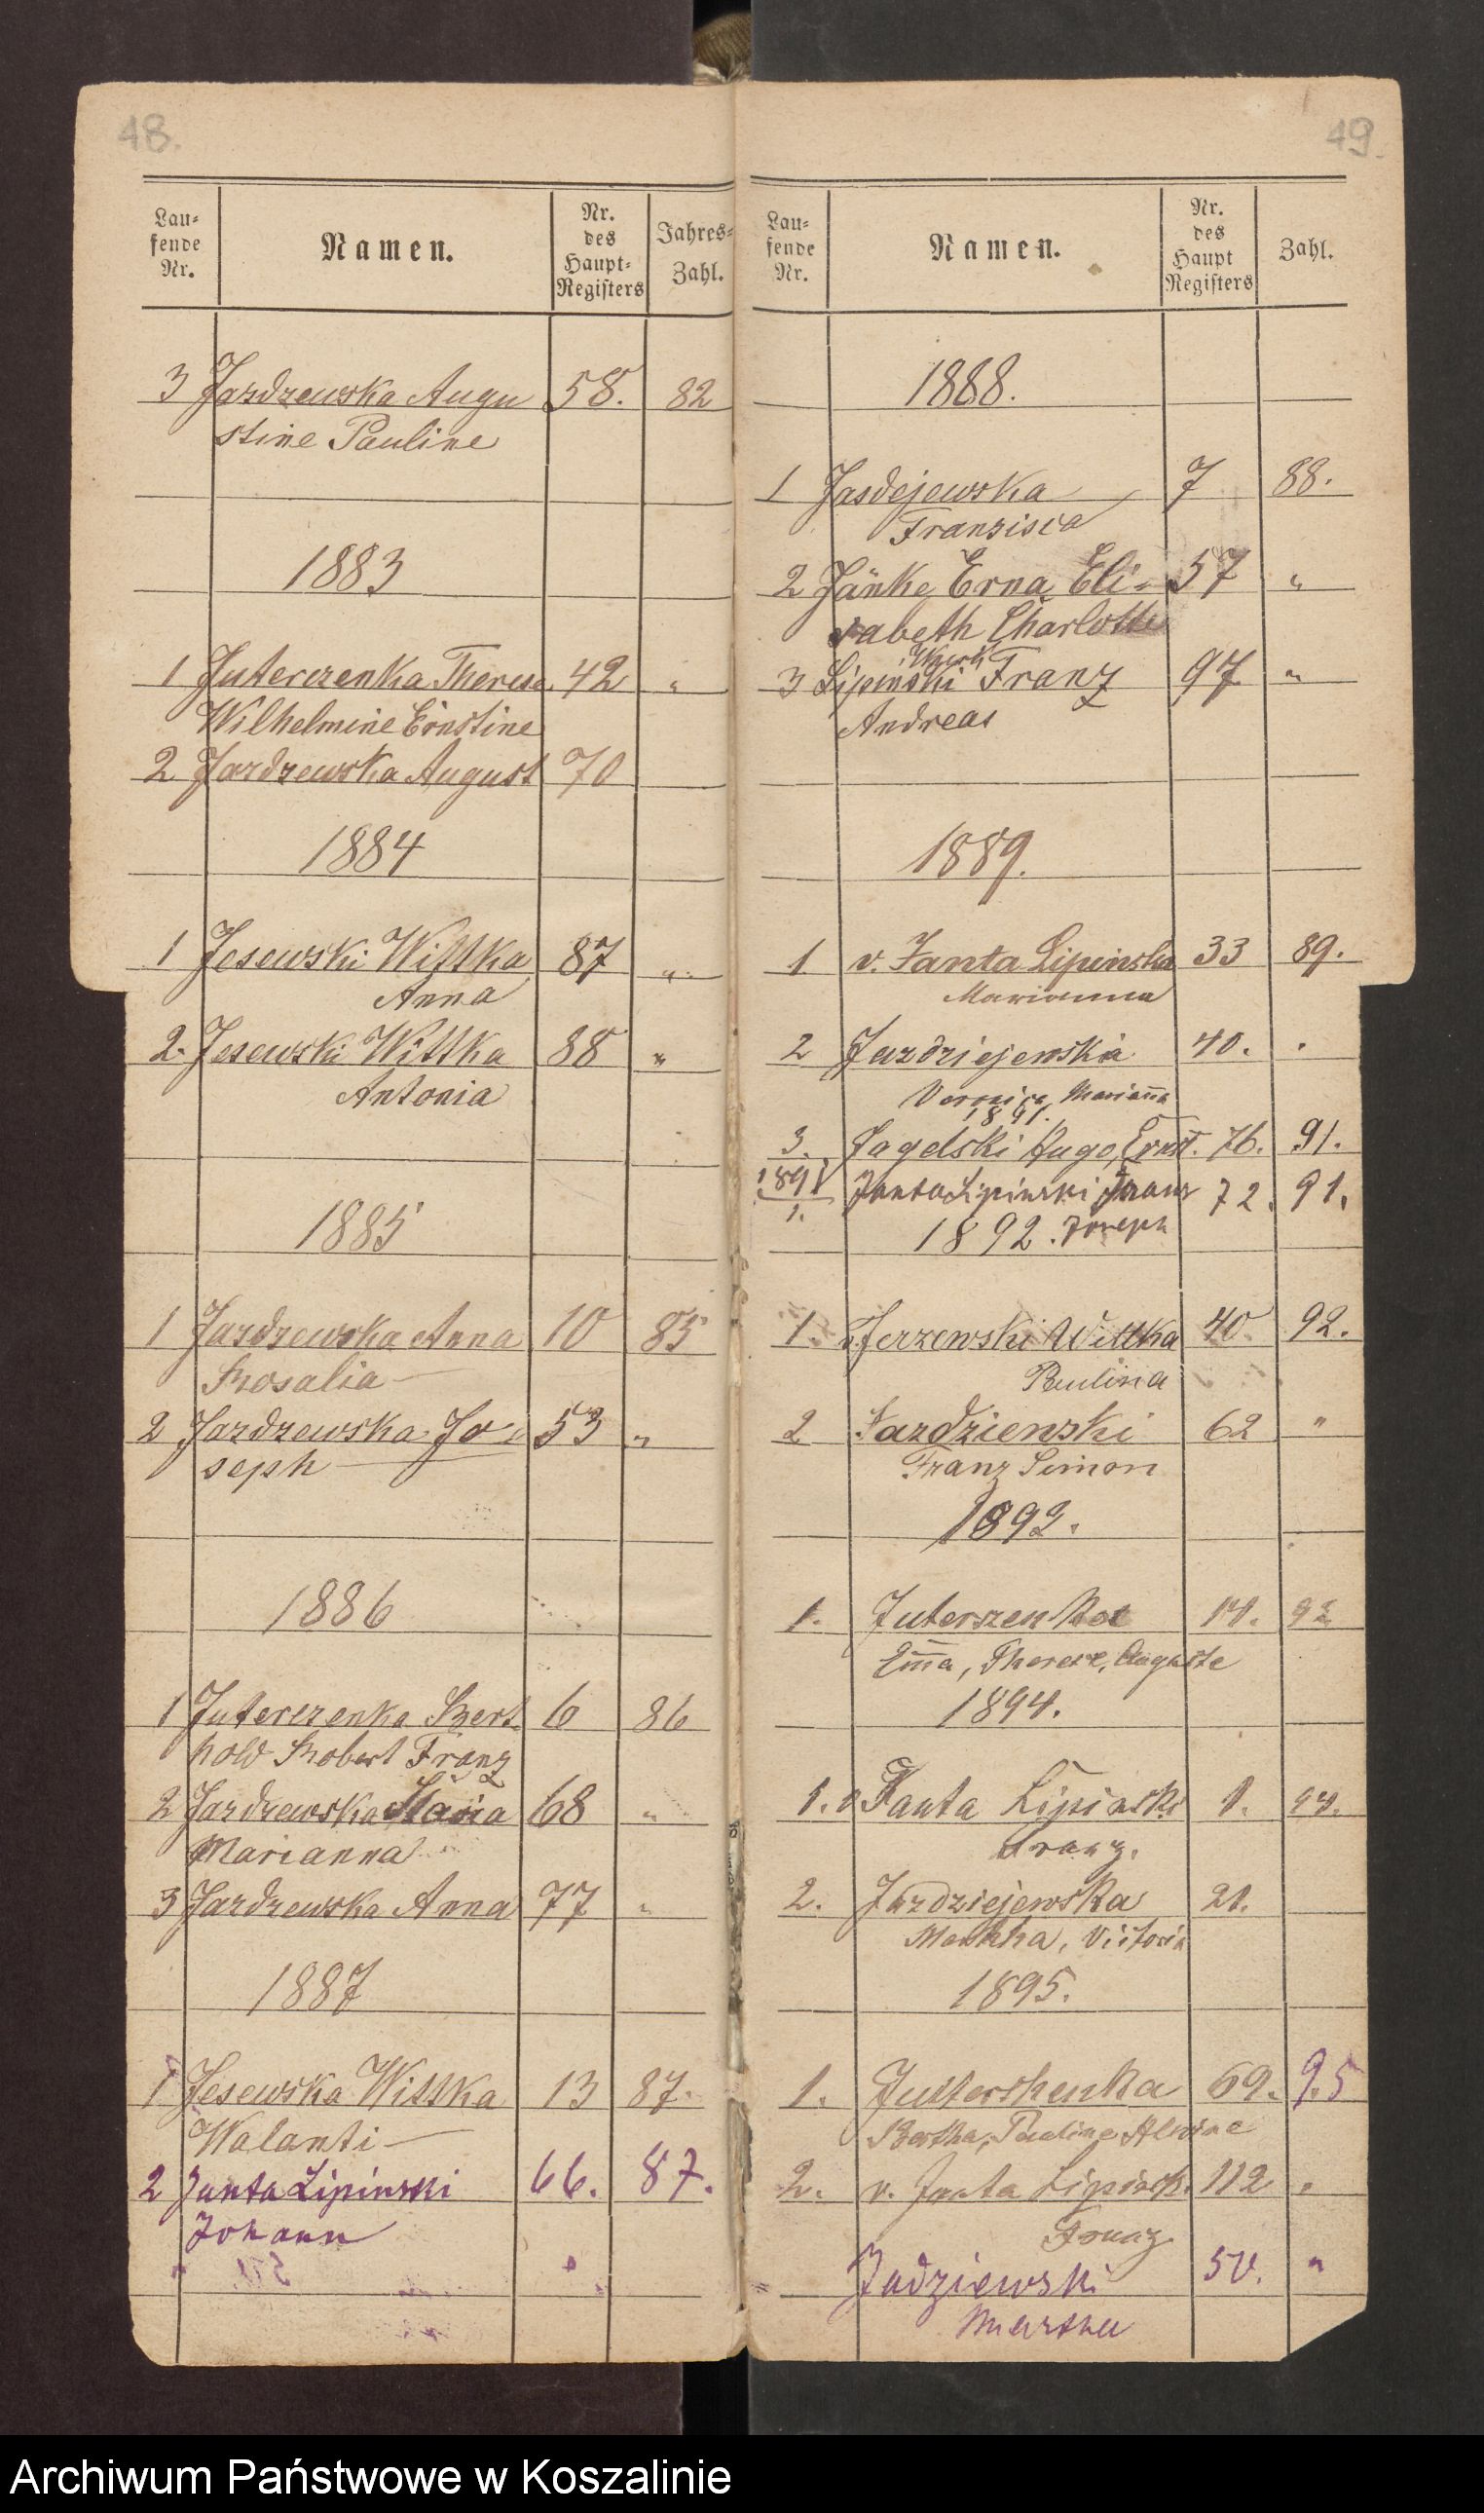 48.
Lau-
fende
Nr.
Namen.
Nr.
des
Haupt-
Registers
Jahres-
Zahl.
3 Jardzewska Augu 58. 82
stine Pauline
1883
1 Juterczenka Therese 42 "
Wilhelmine Ernstine
2 Jardzewska August 70
1884
1 Jesewski Wittka 87 "
Anna
2. Jesewski Wittka 88 "
Antonia
1885
1 Jardzewska Anna 10 85
Rosalia
2 Jardzewska Jo- 53 "
seph
1886
1 Juterczenka Bert- 6 86
hold Robert Franz
2 Jardzewska Maria 68 "
Marianna
3 Jardzewska Anna 77 "
1887
1 Jesewska Wittka 13 87.
Walanti
2 Janta Lipinski 66. 87.
Johann
49.
Lau-
fende
Nr.
Namen.
Nr.
des
Haupt
Registers
Zahl.
1888.
1 Jasdejewska 7 88.
Franzisca
2 Jänke Erna Eli- 57 "
sabeth Charlotte
3 Lipinski Franz 97 "
Andreas
1889.
1 v. Janta Lipinska 33 89.
Marianna
2 Jazdziejewska 40. "
Veronica Mariana
1891.
3. Jagelski Hugo, Ernst. 76. 91.
1891
1. Janta Lipinski Franz 72. 91.
1892. Joseph
1. Jerzewski Wittka 40. 92.
Paulina
2 Jazdziewski 62 "
Franz Simon
1892.
1. Juterszenka 14. 92
Emma, Therese, Auguste
1894.
1. v Janta Lipinski 1. 94.
Franz.
2. Jazdziejewska 21.
Martha, Victoria
1895.
1. Jutterschenka 69. 95
Bertha, Pauline Alwine
2. v. Janta Lipinsk. 112 "
Franz
Jadziewski 50. "
Martha
Archiwum Państwowe w Koszalinie